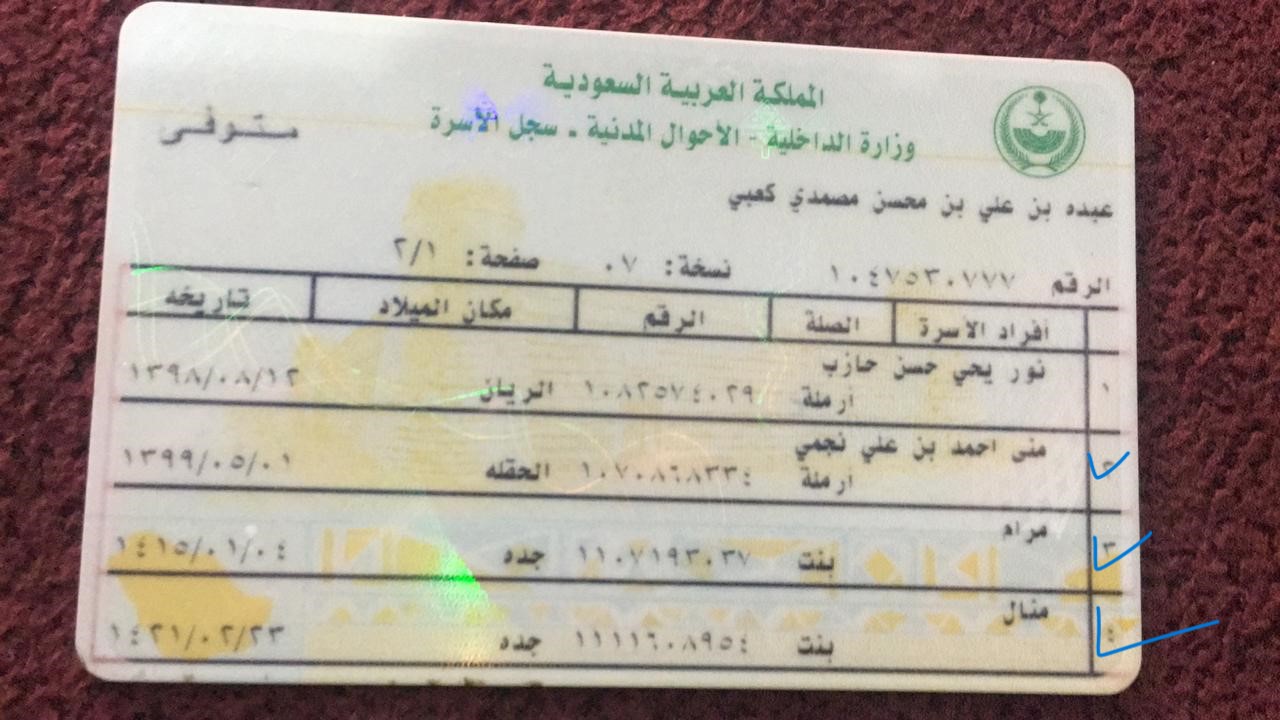 المملكة العربية السعودية
وزارة الداخلية - الأحوال المدنية - سجل الأسرة
متوفى
عبده بن علي بن محسن مصمدي كعبي
الرقم ١٠٤٧٥٣٠٧٧٧ نسخة: ٠٧ صفحة: ٢/١
أفراد الأسرة الصلة الرقم مكان الميلاد تاريخه
نور يحي حسن حازب
١ أرملة ١٠٨٢٥٧٤٠٢٩ الريان ١٣٩٨/٠٨/١٢
منى احمد بن علي نجمي
٢ ارملة ١٠٧٠٨٦٨٣٣٤ الحقله ١٣٩٩/٠٥/٠١
مرام
٣ بنت ١١٠٧١٩٣٠٣٧ جده ١٤١٥/٠١/٠٤
منال
٤ بنت ١١١١٦٠٨٩٥٤ جده ١٤٢١/٠٢/٢٣